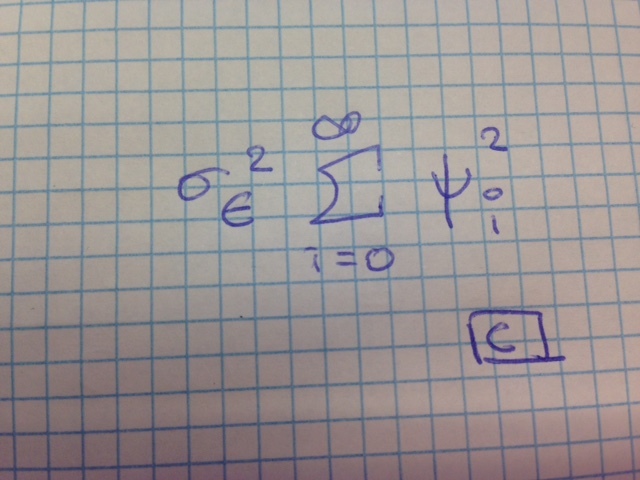 σ_ϵ^2 ∑_{i=0}^{∞} ψ_i^2
C